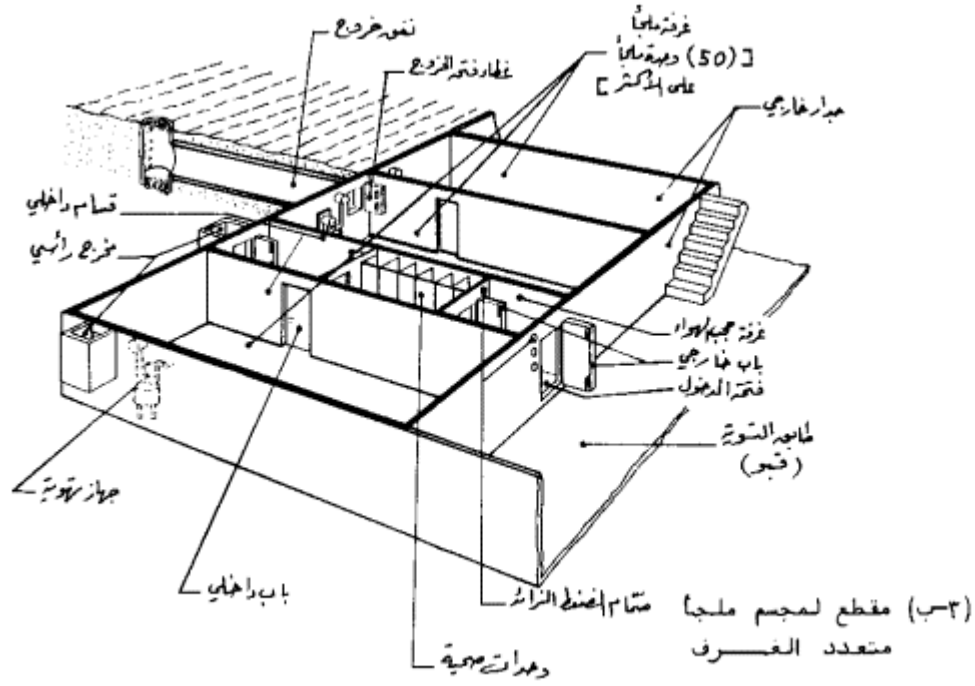 نفق خروج
غطاء فتحة الخروج
غرفة ملجأ
[ (50) وحدة ملجأ
على الأكثر ]
جدار خارجي
قسام داخلي
مخرج رأسي
غرفة حجب لهواء
باب خارجي
فتحة الدخول
طابق التسوية
(قبو)
جهاز تهوية
باب داخلي
صمام الضغط الزائد
وحدات صحية
(٣-ب) مقطع لمجسم ملجأ
متعدد الغـــرف